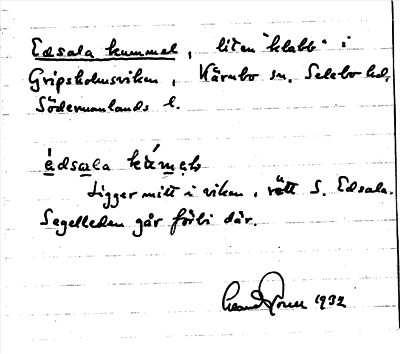 Edsala kummel, liten "klabb" i
Gripsholmsviken, Kärnbo sn. Selebo hd,
Södermanlands l.
Ligger mitt i viken, rätt S. Edsala.
Segelleden går förbi där.
1932